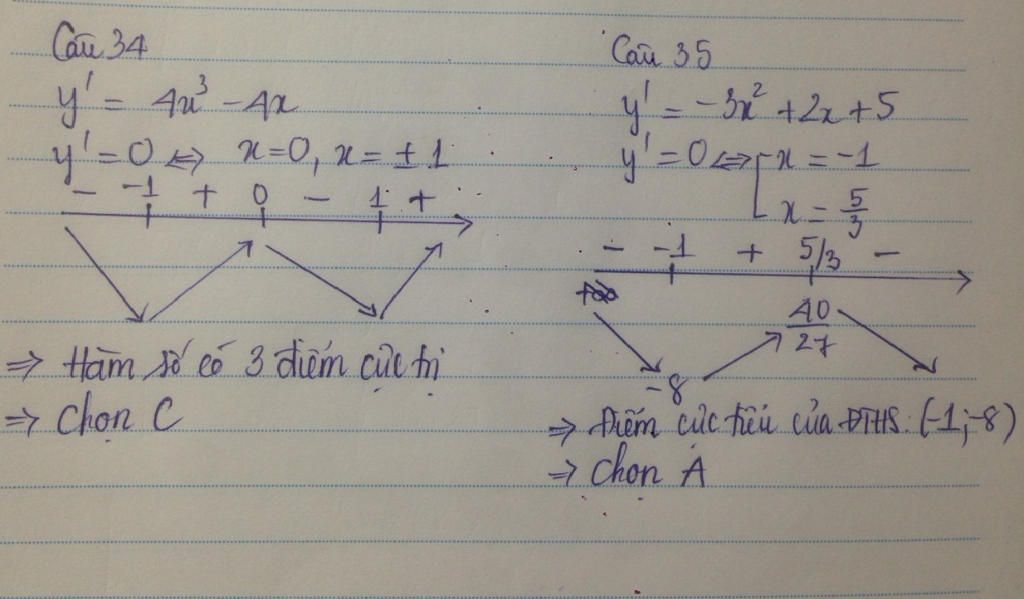 Câu 34
y' = 4x³ - 4x
y' = 0 ⇔ x = 0, x = ± 1
- -1 + 0 - 1 +
⇒ Hàm số có 3 điểm cực trị
⇒ Chọn C
Câu 35
y' = -3x² + 2x + 5
y' = 0 ⇔ [ x = -1
x = 5/3
- -1 + 5/3 -
+∞
40/27
-8
⇒ Điểm cực tiểu của ĐTHS: (-1; -8)
⇒ Chọn A